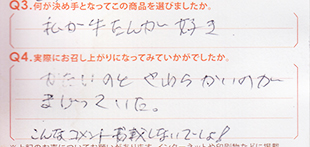 Q3.何が決め手となってこの商品を選びましたか。
私が牛たんが好き
Q4.実際にお召し上がりになってみていかがでしたか。
かたいのと やわらかいのが
まじっていた。
こんなコメント 掲載しないでしょ!